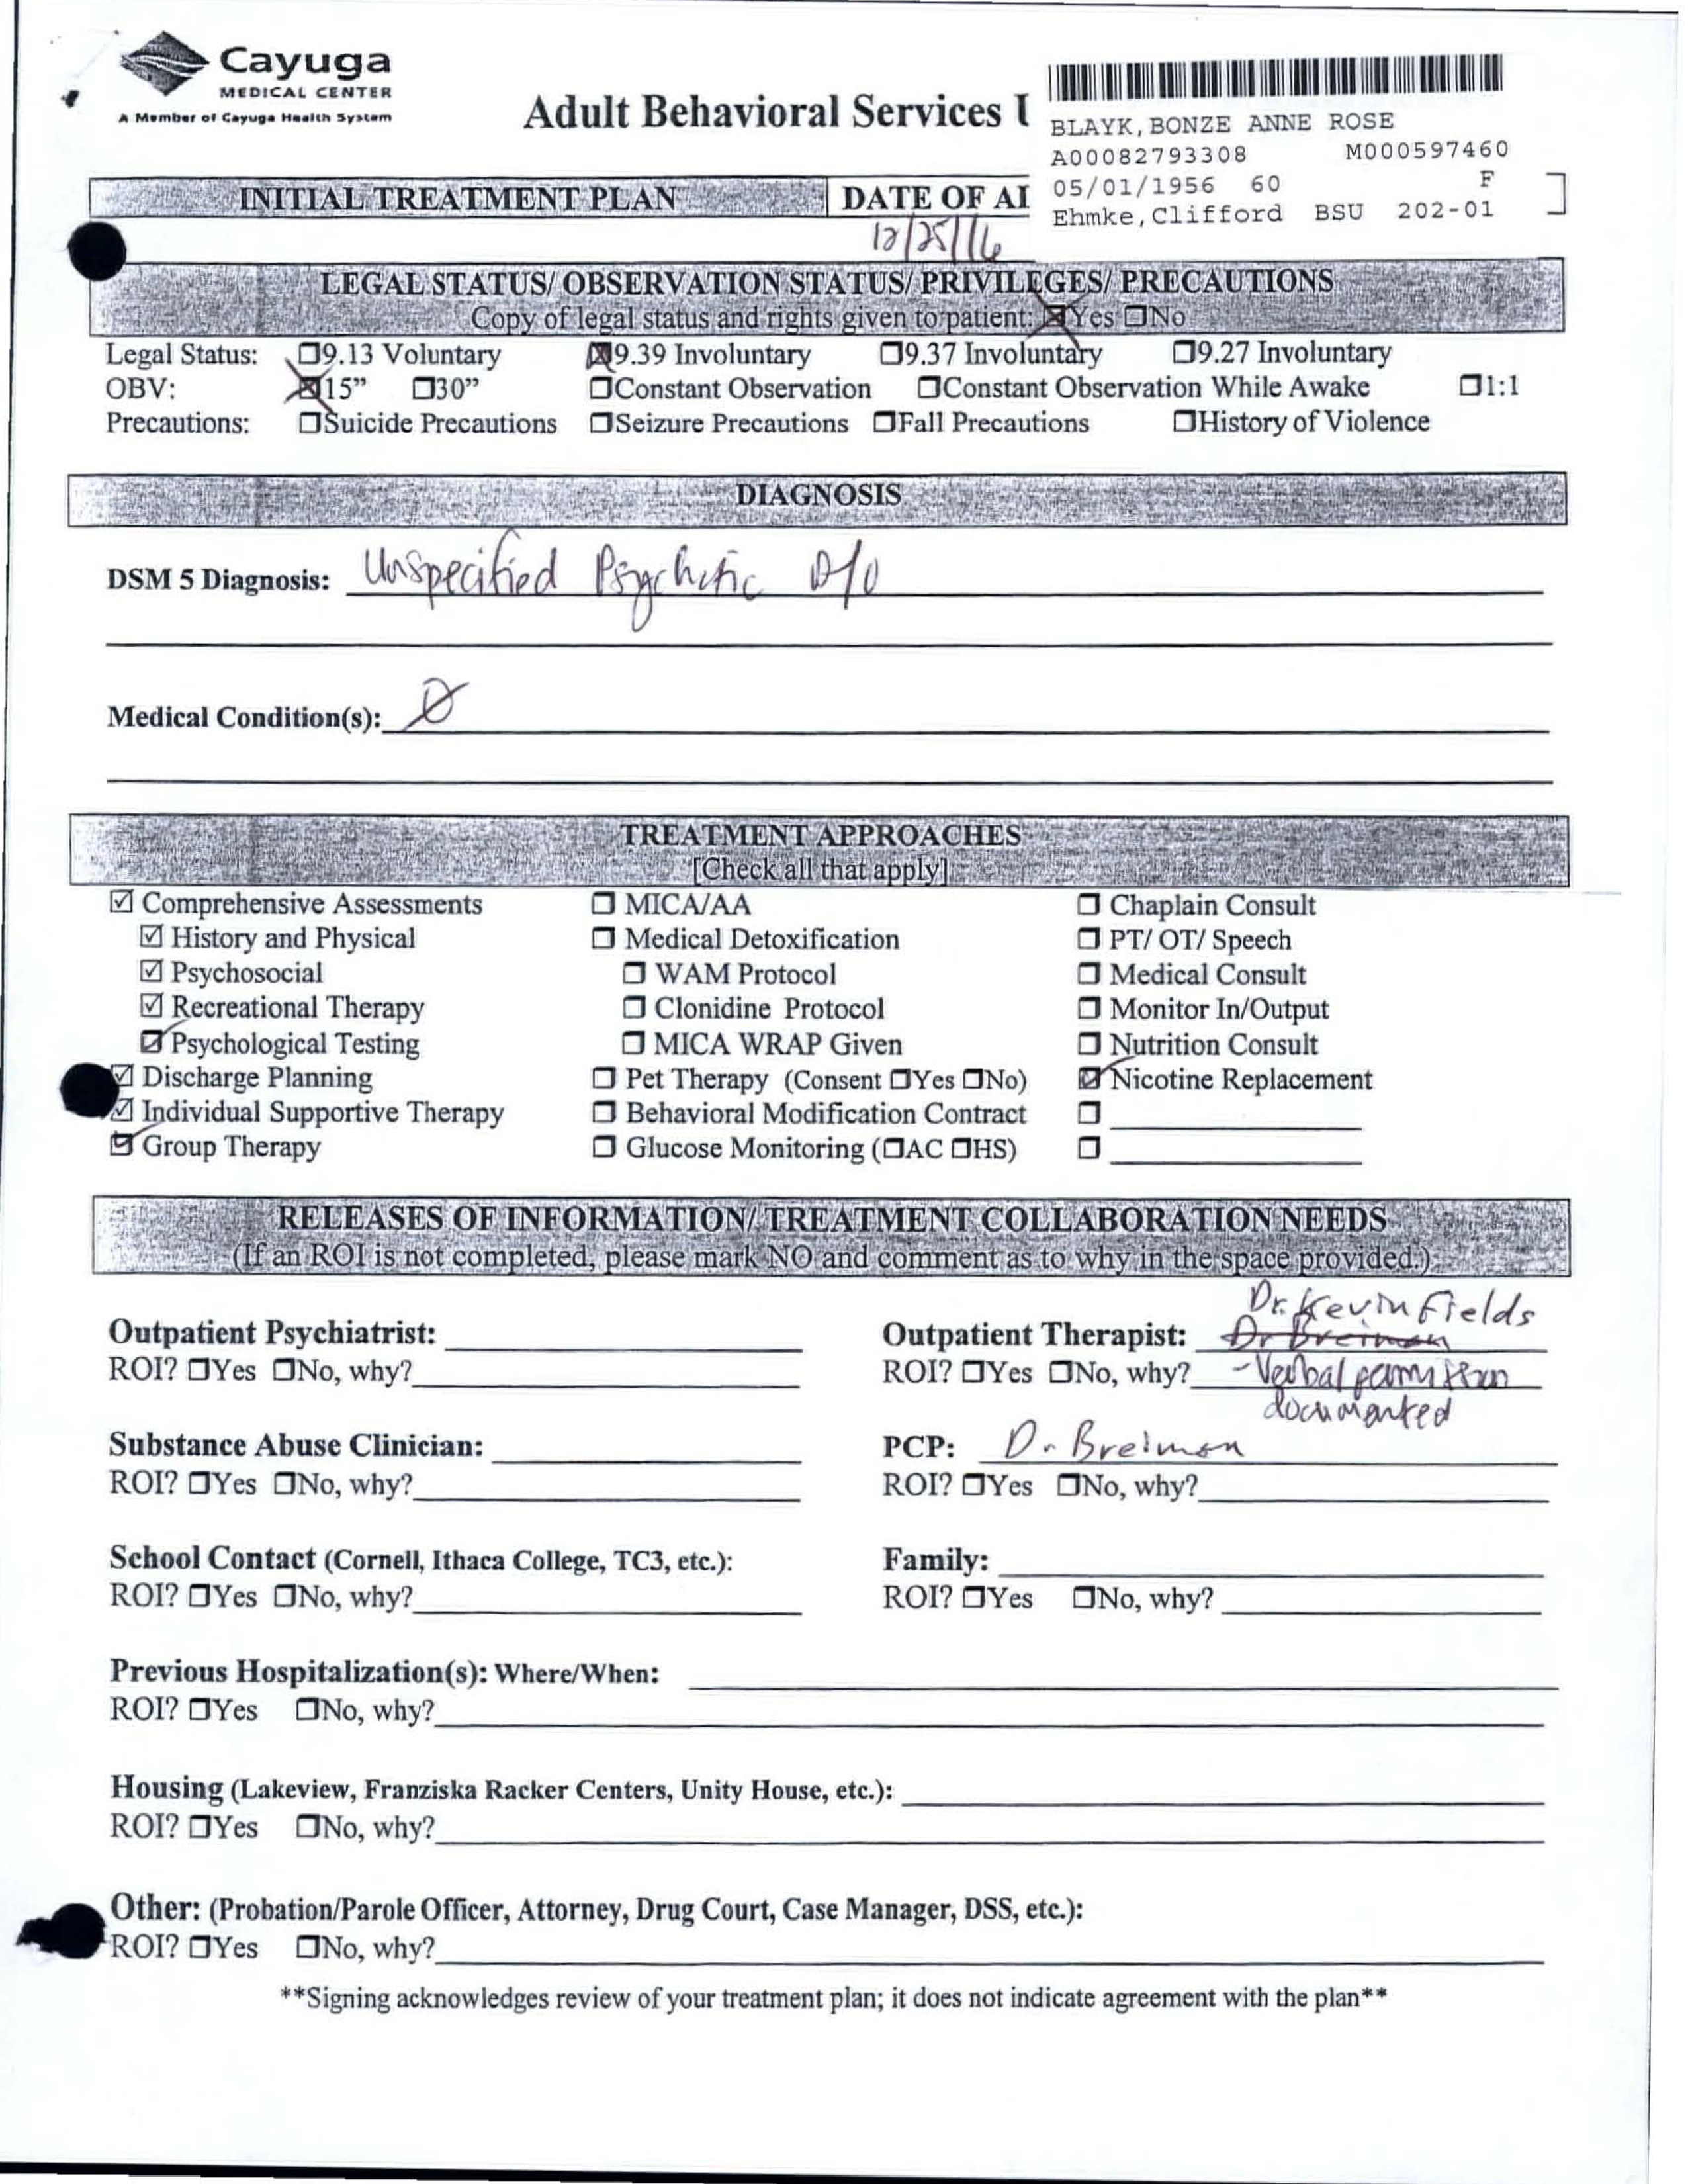 Cayuga
MEDICAL CENTER
A Member of Cayuga Health System
Adult Behavioral Services
BLAYK, BONZE ANNE ROSE
A00082793308 M000597460
05/01/1956 60 F
Ehmke, Clifford BSU 202-01
INITIAL TREATMENT PLAN DATE OF
12/25/16
LEGAL STATUS/ OBSERVATION STATUS/ PRIVILEGES/ PRECAUTIONS
Copy of legal status and rights given to patient: ☒Yes ☐No
Legal Status: ☐9.13 Voluntary ☒9.39 Involuntary ☐9.37 Involuntary ☐9.27 Involuntary
OBV: ☒15” ☐30” ☐Constant Observation ☐Constant Observation While Awake ☐1:1
Precautions: ☐Suicide Precautions ☐Seizure Precautions ☐Fall Precautions ☐History of Violence
DIAGNOSIS
DSM 5 Diagnosis: Unspecified Psychotic D/O
Medical Condition(s): Ø
TREATMENT APPROACHES
[Check all that apply]
☑ Comprehensive Assessments ☐ MICA/AA ☐ Chaplain Consult
☑ History and Physical ☐ Medical Detoxification ☐ PT/ OT/ Speech
☑ Psychosocial ☐ WAM Protocol ☐ Medical Consult
☑ Recreational Therapy ☐ Clonidine Protocol ☐ Monitor In/Output
☑ Psychological Testing ☐ MICA WRAP Given ☐ Nutrition Consult
☑ Discharge Planning ☐ Pet Therapy (Consent ☐Yes ☐No) ☑ Nicotine Replacement
☑ Individual Supportive Therapy ☐ Behavioral Modification Contract ☐
☑ Group Therapy ☐ Glucose Monitoring (☐AC ☐HS) ☐
RELEASES OF INFORMATION/ TREATMENT COLLABORATION NEEDS
(If an ROI is not completed, please mark NO and comment as to why in the space provided.)
Dr. Kevin Fields
Outpatient Psychiatrist: Outpatient Therapist: Dr Breiman
ROI? ☐Yes ☐No, why? ROI? ☐Yes ☐No, why? - Verbal permission
documented
Substance Abuse Clinician: PCP: Dr Breiman
ROI? ☐Yes ☐No, why? ROI? ☐Yes ☐No, why?
School Contact (Cornell, Ithaca College, TC3, etc.): Family:
ROI? ☐Yes ☐No, why? ROI? ☐Yes ☐No, why?
Previous Hospitalization(s): Where/When:
ROI? ☐Yes ☐No, why?
Housing (Lakeview, Franziska Racker Centers, Unity House, etc.):
ROI? ☐Yes ☐No, why?
Other: (Probation/Parole Officer, Attorney, Drug Court, Case Manager, DSS, etc.):
ROI? ☐Yes ☐No, why?
**Signing acknowledges review of your treatment plan; it does not indicate agreement with the plan**